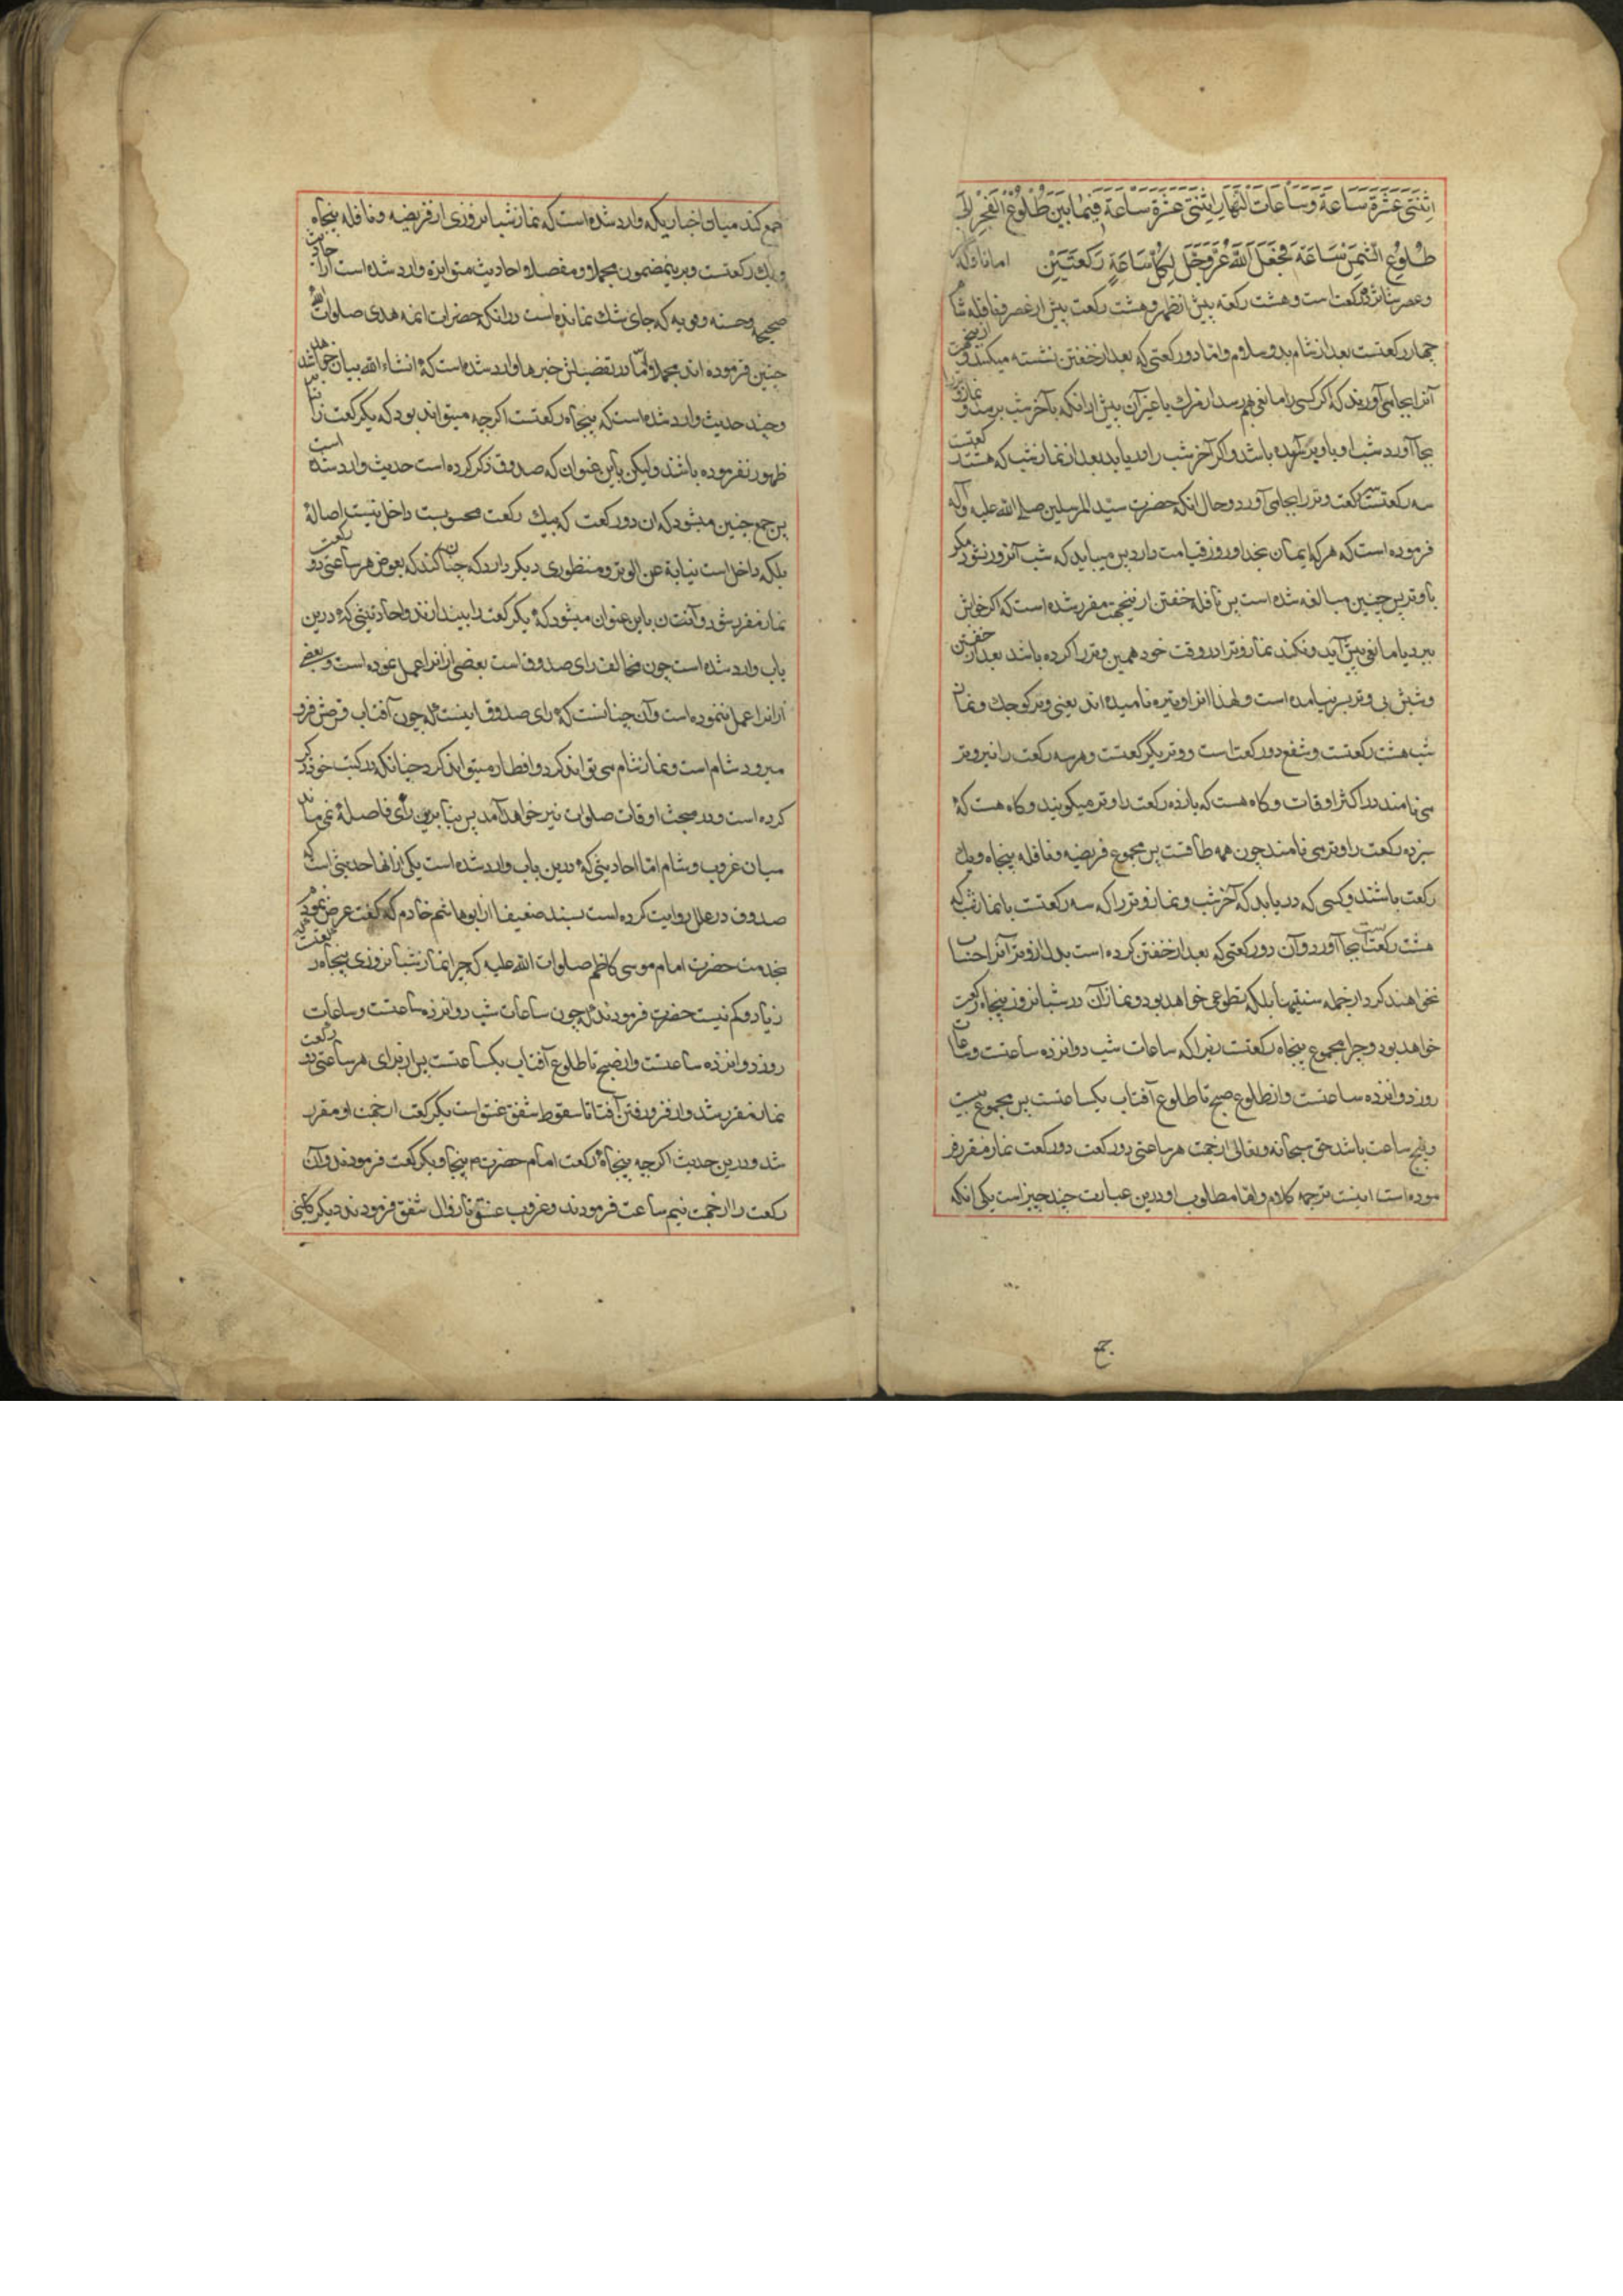 اِثْنَتَیْ عَشْرَةَ سَاعَةً وَسَاعَاتِ النَّهَارِ اِثْنَتَیْ عَشْرَةَ سَاعَةً فِیمَا بَیْنَ طُلُوعِ الْفَجْرِ اِلَی
طُلُوعِ الشَّمْسِ سَاعَةً فَجَعَلَ اللّٰهُ عَزَّوَجَلَّ لِکُلِّ سَاعَةٍ رَکْعَتَیْنِ اما نافله
وعصر شانزده رکعت است وهشت رکعه پیش از ظهر وهشت رکعت پیش از عصر ونافله شام
چهار رکعتست بعد از شام بدو سلام واما دو رکعتی که بعد از خفتن نشسته میکنند و از اینجهت
آنرا بجا می آورند که اگر کسی را مانعی بهم رسد از مرك یا غیر آن پیش از انکه بآخر شب برسد و نماز وتر
بجا آورد شب او با وتر آمده باشد واکر آخر شب را دریابد بعد از نماز شب که هشت رکعتست
سه رکعت وتر را بجا می آورد وحال انکه حضرت سیّد المرسلین صلی الله علیه وآله
فرموده است که هر که ایمان بخدا وروز قیامت دارد پس میباید که شب آنروز نشود مکر
با وتر پس چنین مبالغه شده است پس نافله خفتن از اینجهت مقرر شده است که اکر خوابش
ببرد یا مانعی پیش آید ونکند نماز وتر را در وقت خود همین وتر را کرده باشد بعد از خفتن
وشبش بی وتر بسر نیامده است ولهذا انرا وتیره نامیده اند یعنی وتر کوچك ونماز
شب هشت رکعتست وشفع دو رکعت است ووتر یکرکعتست وهر سه رکعت را نیز وتر
می نامند در اکثر اوقات وکاه هست که یازده رکعت را وتر میکویند وکاه هست که
سیزده رکعت را وتر می نامند چون همه طاقست پس مجموع فریضه ونافله پنجاه ویك
رکعت باشند وکسی که دریابد که آخر شب ونماز وتر را که سه رکعتست با نماز شب که
هشت رکعت است بجا آورد وآن دو رکعتی که بعد از خفتن کرده است بدل از وتر آنرا حساب
نخواهند کرد از جمله سنتیها بلکه تطوعی خواهد بود ونماز آن در شبانروز پنجاه رکعت
خواهد بود وچرا مجموع پنجاه رکعتست زیرا که ساعات شب دوازده ساعتست وساعات
روز دوازده ساعتست واز طلوع صبح تا طلوع آفتاب یکساعتست پس مجموع بیست
وپنج ساعت باشد حق سبحانه وتعالی از جهت هر ساعتی دو رکعت دو رکعت نماز مقرر فر
موده است اینست ترجمه کلام واما مطلوب او درین عبارت چند چیز است یکی انکه
جمع کند میان اخباریکه وارد شده است که نماز شبانروزی از فریضه ونافله پنجاه
ویك رکعتست وبرینمضمون مجملا ومفصلا احادیث متواتره وارد شده است از احادیث
صحیحه وحسنه وموثقه که جای شك نمانده است در انکه حضرات ائمه هدی صلوات الله
چنین فرموده اند مجملا واما در تفضیلش خبرها وارد شده است که انشاء الله بیان خواهد شد
وچند حدیث وارد شده است که پنجاه رکعتست اکرچه میتواند بود که یکرکعت را بنابر
ظهور نفرموده باشند ولیکن باین عنوان که صدوق ذکر کرده است حدیث وارد شده است
پس جمع چنین میشود که ان دو رکعت که بیك رکعت محسوبست داخل نیست اصالة
بلکه داخل است نیابة عن الوتر ومنظوری دیکر دارد که چنان کند که بعوض هر ساعتی دو رکعت
نماز مقرر شود وآنت ن باین عنوان میشود که یکرکعت را بیندازند واحادیثی که درین
باب وارد شده است چون مخالف رای صدوق است بعضی از انرا عمل نموده است وبعضی
از انرا عمل ننموده است وآن چنانست که رای صدوق اینست که چون آفتاب قرصش فرو
میرود شام است ونماز شام می تواند کرد وافطار میتواند کرد چنانکه در کتب خود ذکر
کرده است ودر مبحث اوقات صلوات نیز خواهد آمد پس بنابرین رای فاصلۀ نمی ماند
میان غروب وشام اما احادیثی که درین باب وارد شده است یکی از انها حدیثی است که
صدوق در علل روایت کرده است بسند ضعیف از ابوهاشم خادم که کفت عرض نمودم
بخدمت حضرت امام موسی کاظم صلوات الله علیه که چرا نماز شبانروزی پنجاه رکعتست که
زیاد وکم نیست حضرت فرمودند که چون ساعات شب دوازده ساعتست وساعات
روز دوازده ساعتست واز صبح تا طلوع آفتاب یکساعتست پس از برای هر ساعتی دو رکعت
نماز مقرر شد واز فرو رفتن آفتاب تا سقوط شفق غسق است یکرکعت از جهت او مقرر
شد ودرین حدیث اکرچه پنجاه رکعت امام حضرت پنجاه ویکرکعت فرمودند وآن
رکعت را از جهت نیم ساعت فرمودند وغروب غسق تا زوال شفق فرمودند دیکر کلینی
ج